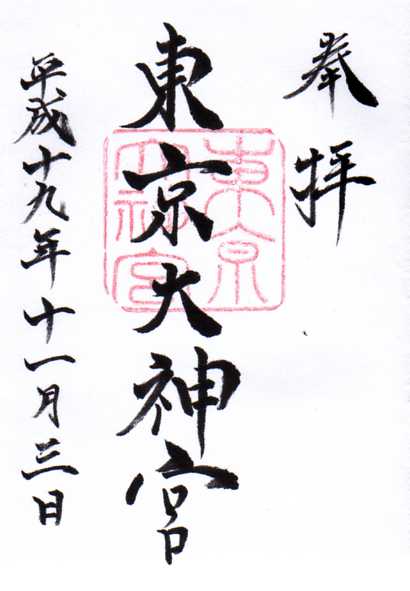 奉拝
東京大神宮
東京大神宮
平成十九年十一月三日